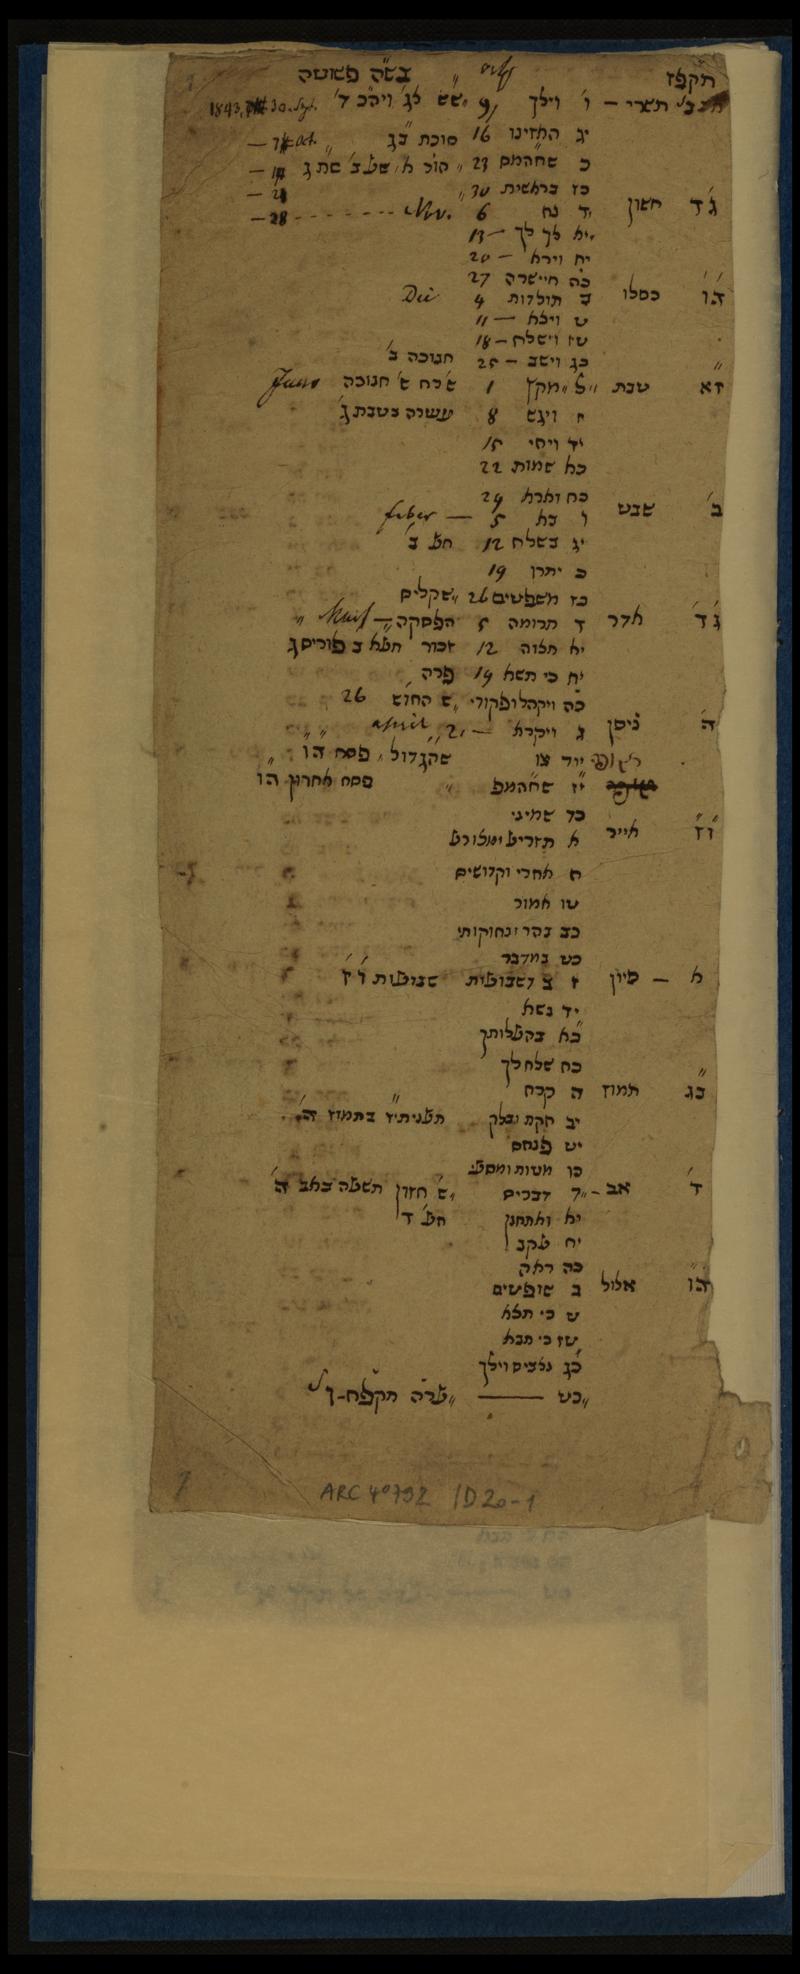 תקפז בש״ה פשוטה
תשרי – ו׳ וילך 9 שש צג׳ ויה״כ ד׳ 1843, 30. Sept.
יג האזינו 16 סוכת בג 7 Oct. –
כ שחהמס 23 הור א׳ שעצב׳ שת ג –
כז בראשית 30 21 –
ג׳ד חשון ד נח 6 Nov. - - - - - 28 –
יא לך לך – 13
יח וירא – 20
כה חיי שרה 27
ה׳ו׳ כסלו ב תולדות 4 Dec
ט ויצא – 11
טז וישלח – 18
כג וישב – 25 חנוכה ב׳
זא טבת ל מקץ 1 ש׳ רח ש׳ חנוכה Janr
ח ויגש 8 עשרה בטבת ג׳
יד ויחי 15
כא שמות 22
כח וארא 29
ב׳ שבט ו בא 5 — feber
יג בשלח 12 חצ ב׳
כ יתרו 19
כז משפטים 26 שקלים
ג׳ד׳ אדר ד תרומה 5 הפסקה –
יא תצוה 12 זכור תענ״א ב פורים ג
יח כי תשא 19 פרה
כה ויקהל ופקודי ש החוש 26
ה׳ ניסן ג ויקרא – 2 april
יוד צו שהגדול, פסח הו
יז שחהמפ פסח אחרון הו
כד שמיני
ו״ז״ אייר א תזריע ומצורע
ח אחרי וקדושים
טו אמור
כב בהר ובחוקותי
כט במדבר
א – סיון ז שבועות ו׳ז׳
יד נשא
כא בהעלותך
כח שלח לך
בג תמוז ה קרח
יב חקת ובלק תענית י״ז בתמוז ה׳
יט פנחס
כו מטות ומסע
ד׳ אב – ד דברים ש׳ חזון תשעה באב ה׳
יא ואתחנן חצ ד
יח עקב
כה ראה
הו אלול ב שופטים
ט כי תצא
טז כי תבא
כג נצבים וילך
כט —— ער״ה תקפח
ARC 4º792 / D20-1